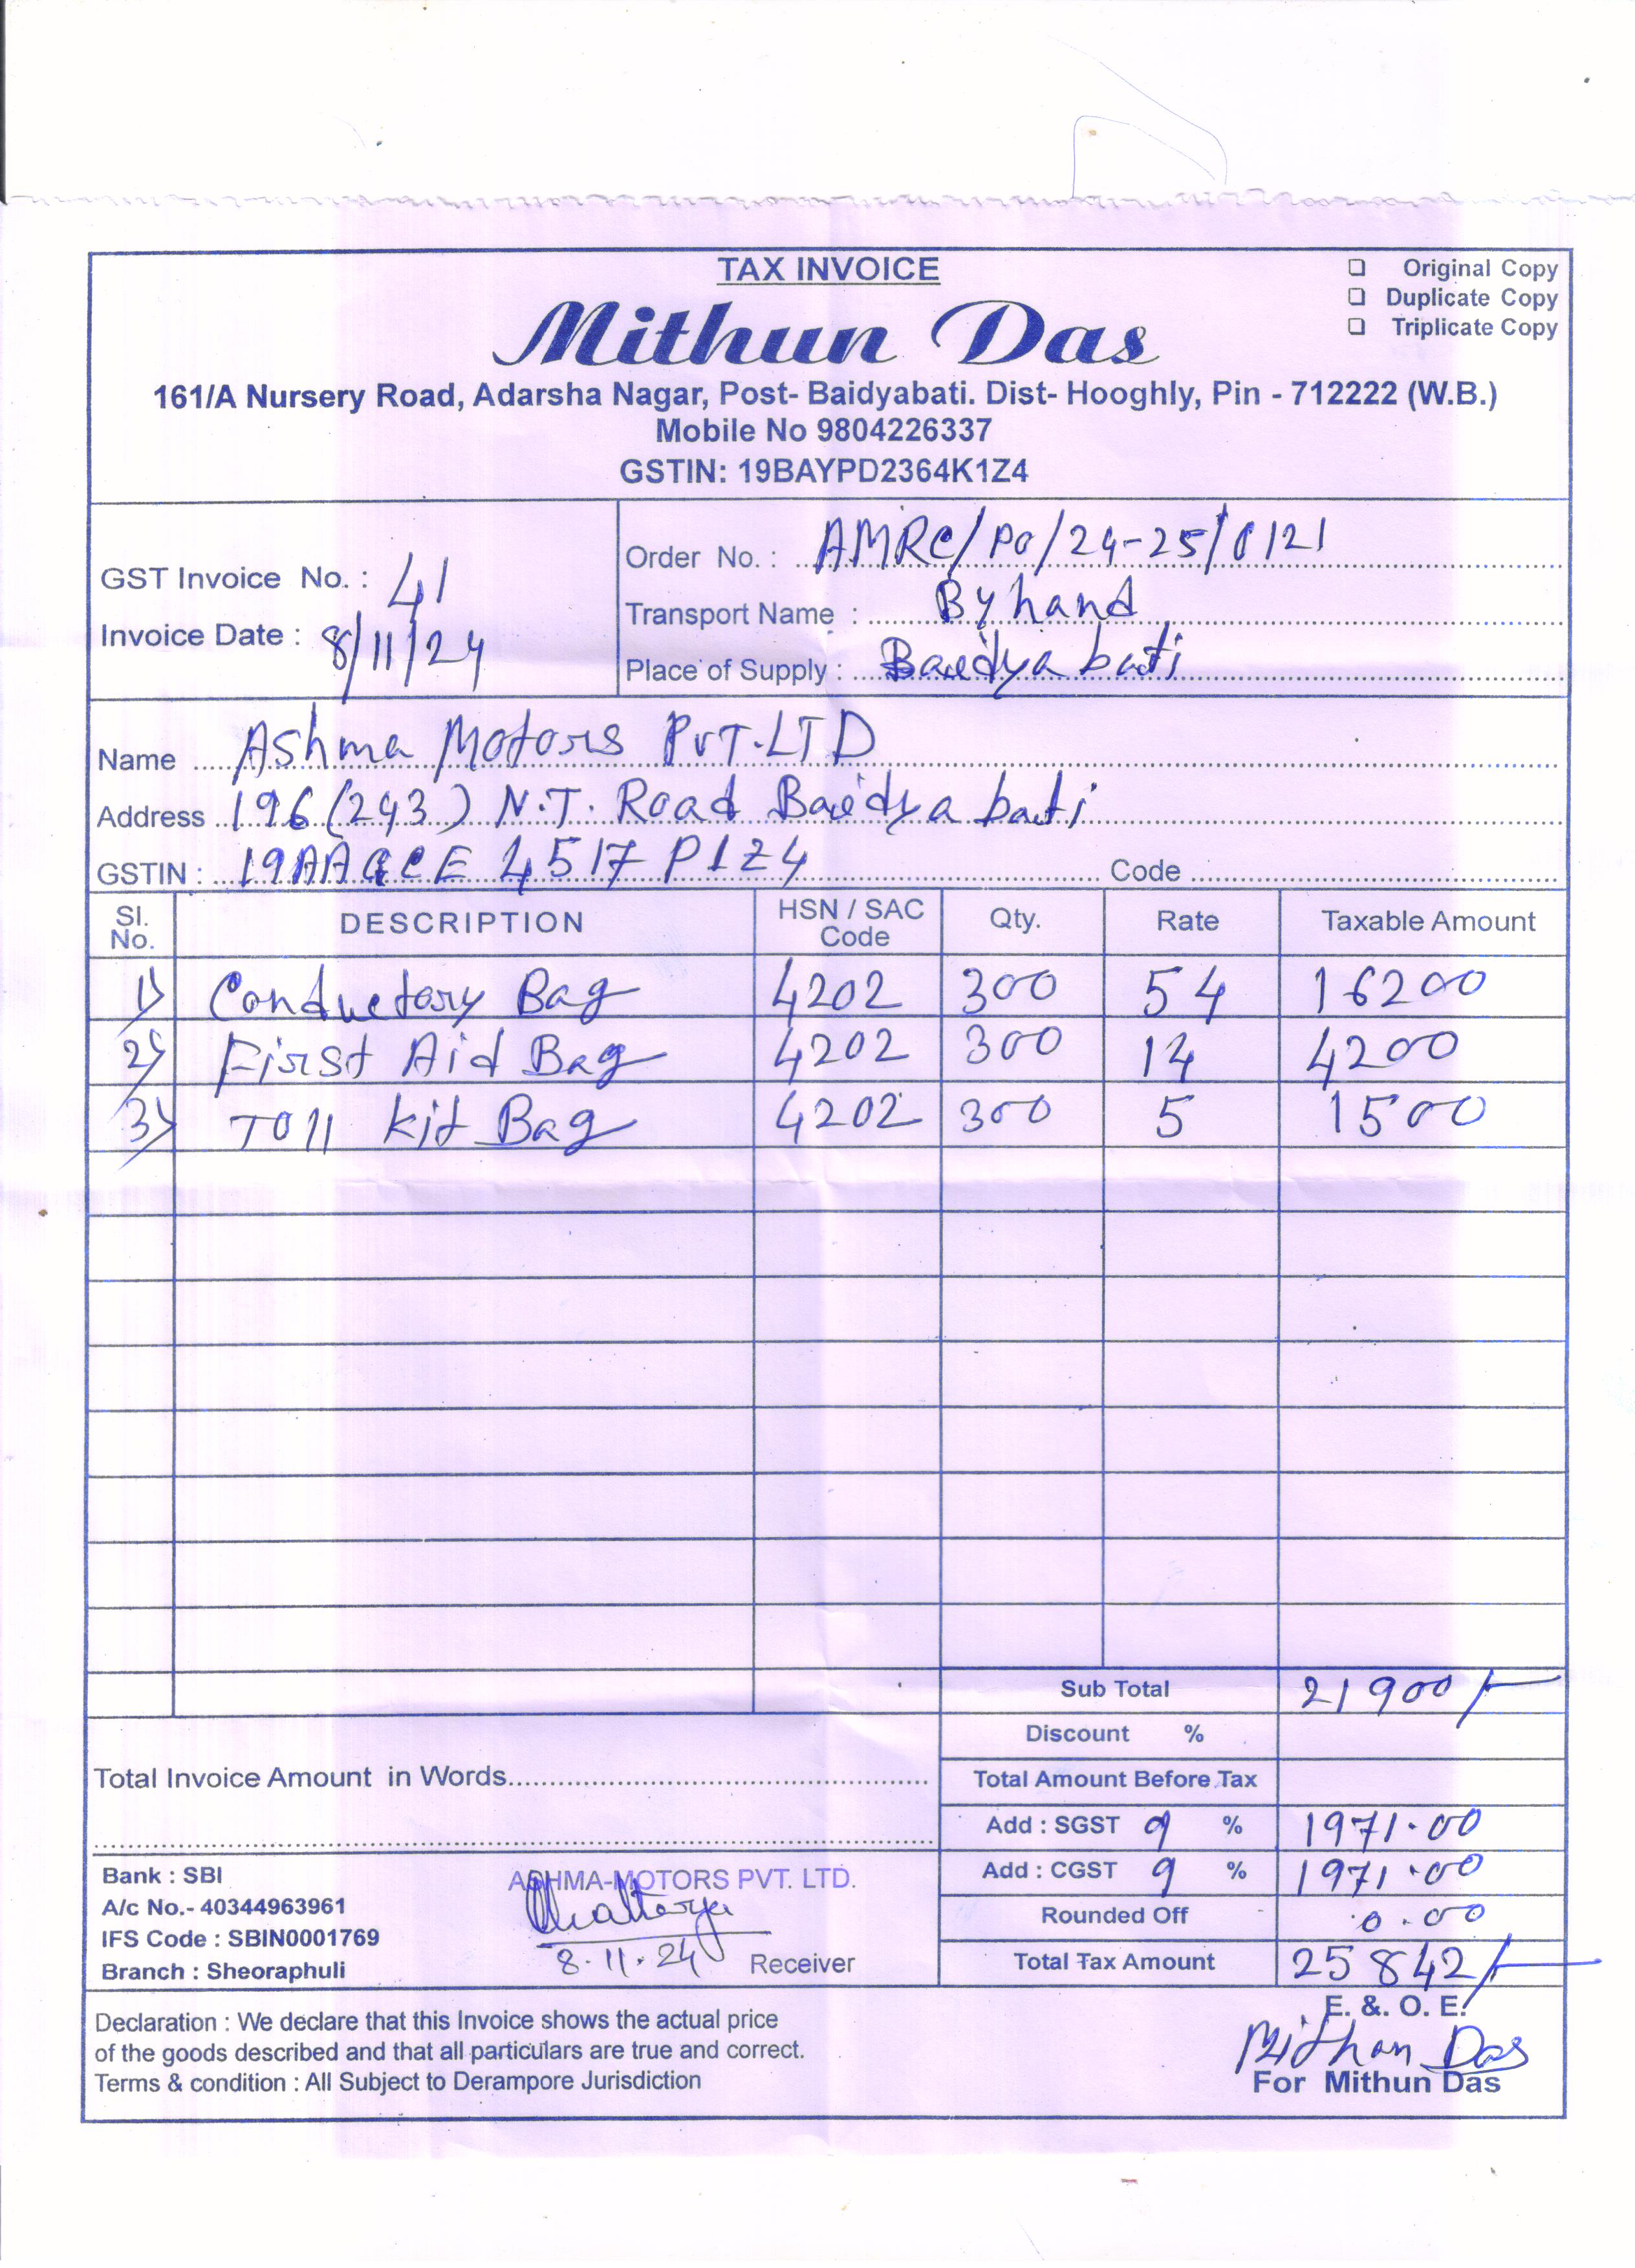 TAX INVOICE
Original Copy
Duplicate Copy
Triplicate Copy
Mithun Das
161/A Nursery Road, Adarsha Nagar, Post- Baidyabati. Dist- Hooghly, Pin - 712222 (W.B.)
Mobile No 9804226337
GSTIN: 19BAYPD2364K1Z4
GST Invoice No. : 41
Invoice Date : 8/11/24
Order No. : AMRC/PO/24-25/0121
Transport Name : By hand
Place of Supply : Baidyabati
Name Ashma Motors PVT.LTD
Address 196(243) N.T. Road Baidyabati
GSTIN : 19AAGCE4517P1Z4 Code
Sl. No. DESCRIPTION HSN / SAC Code Qty. Rate Taxable Amount
1) Conductory Bag 4202 300 54 16200
2) First Aid Bag 4202 300 14 4200
3) Toll kit Bag 4202 300 5 1500
Sub Total 21900/-
Discount %
Total Invoice Amount in Words
Total Amount Before Tax
Add : SGST 9 % 1971.00
Add : CGST 9 % 1971.00
Rounded Off 0.00
Total Tax Amount 25842/-
Bank : SBI
A/c No.- 40344963961
IFS Code : SBIN0001769
Branch : Sheoraphuli
ASHMA-MOTORS PVT. LTD.
8.11.24 Receiver
E. &. O. E.
Mithun Das
For Mithun Das
Declaration : We declare that this Invoice shows the actual price
of the goods described and that all particulars are true and correct.
Terms & condition : All Subject to Derampore Jurisdiction